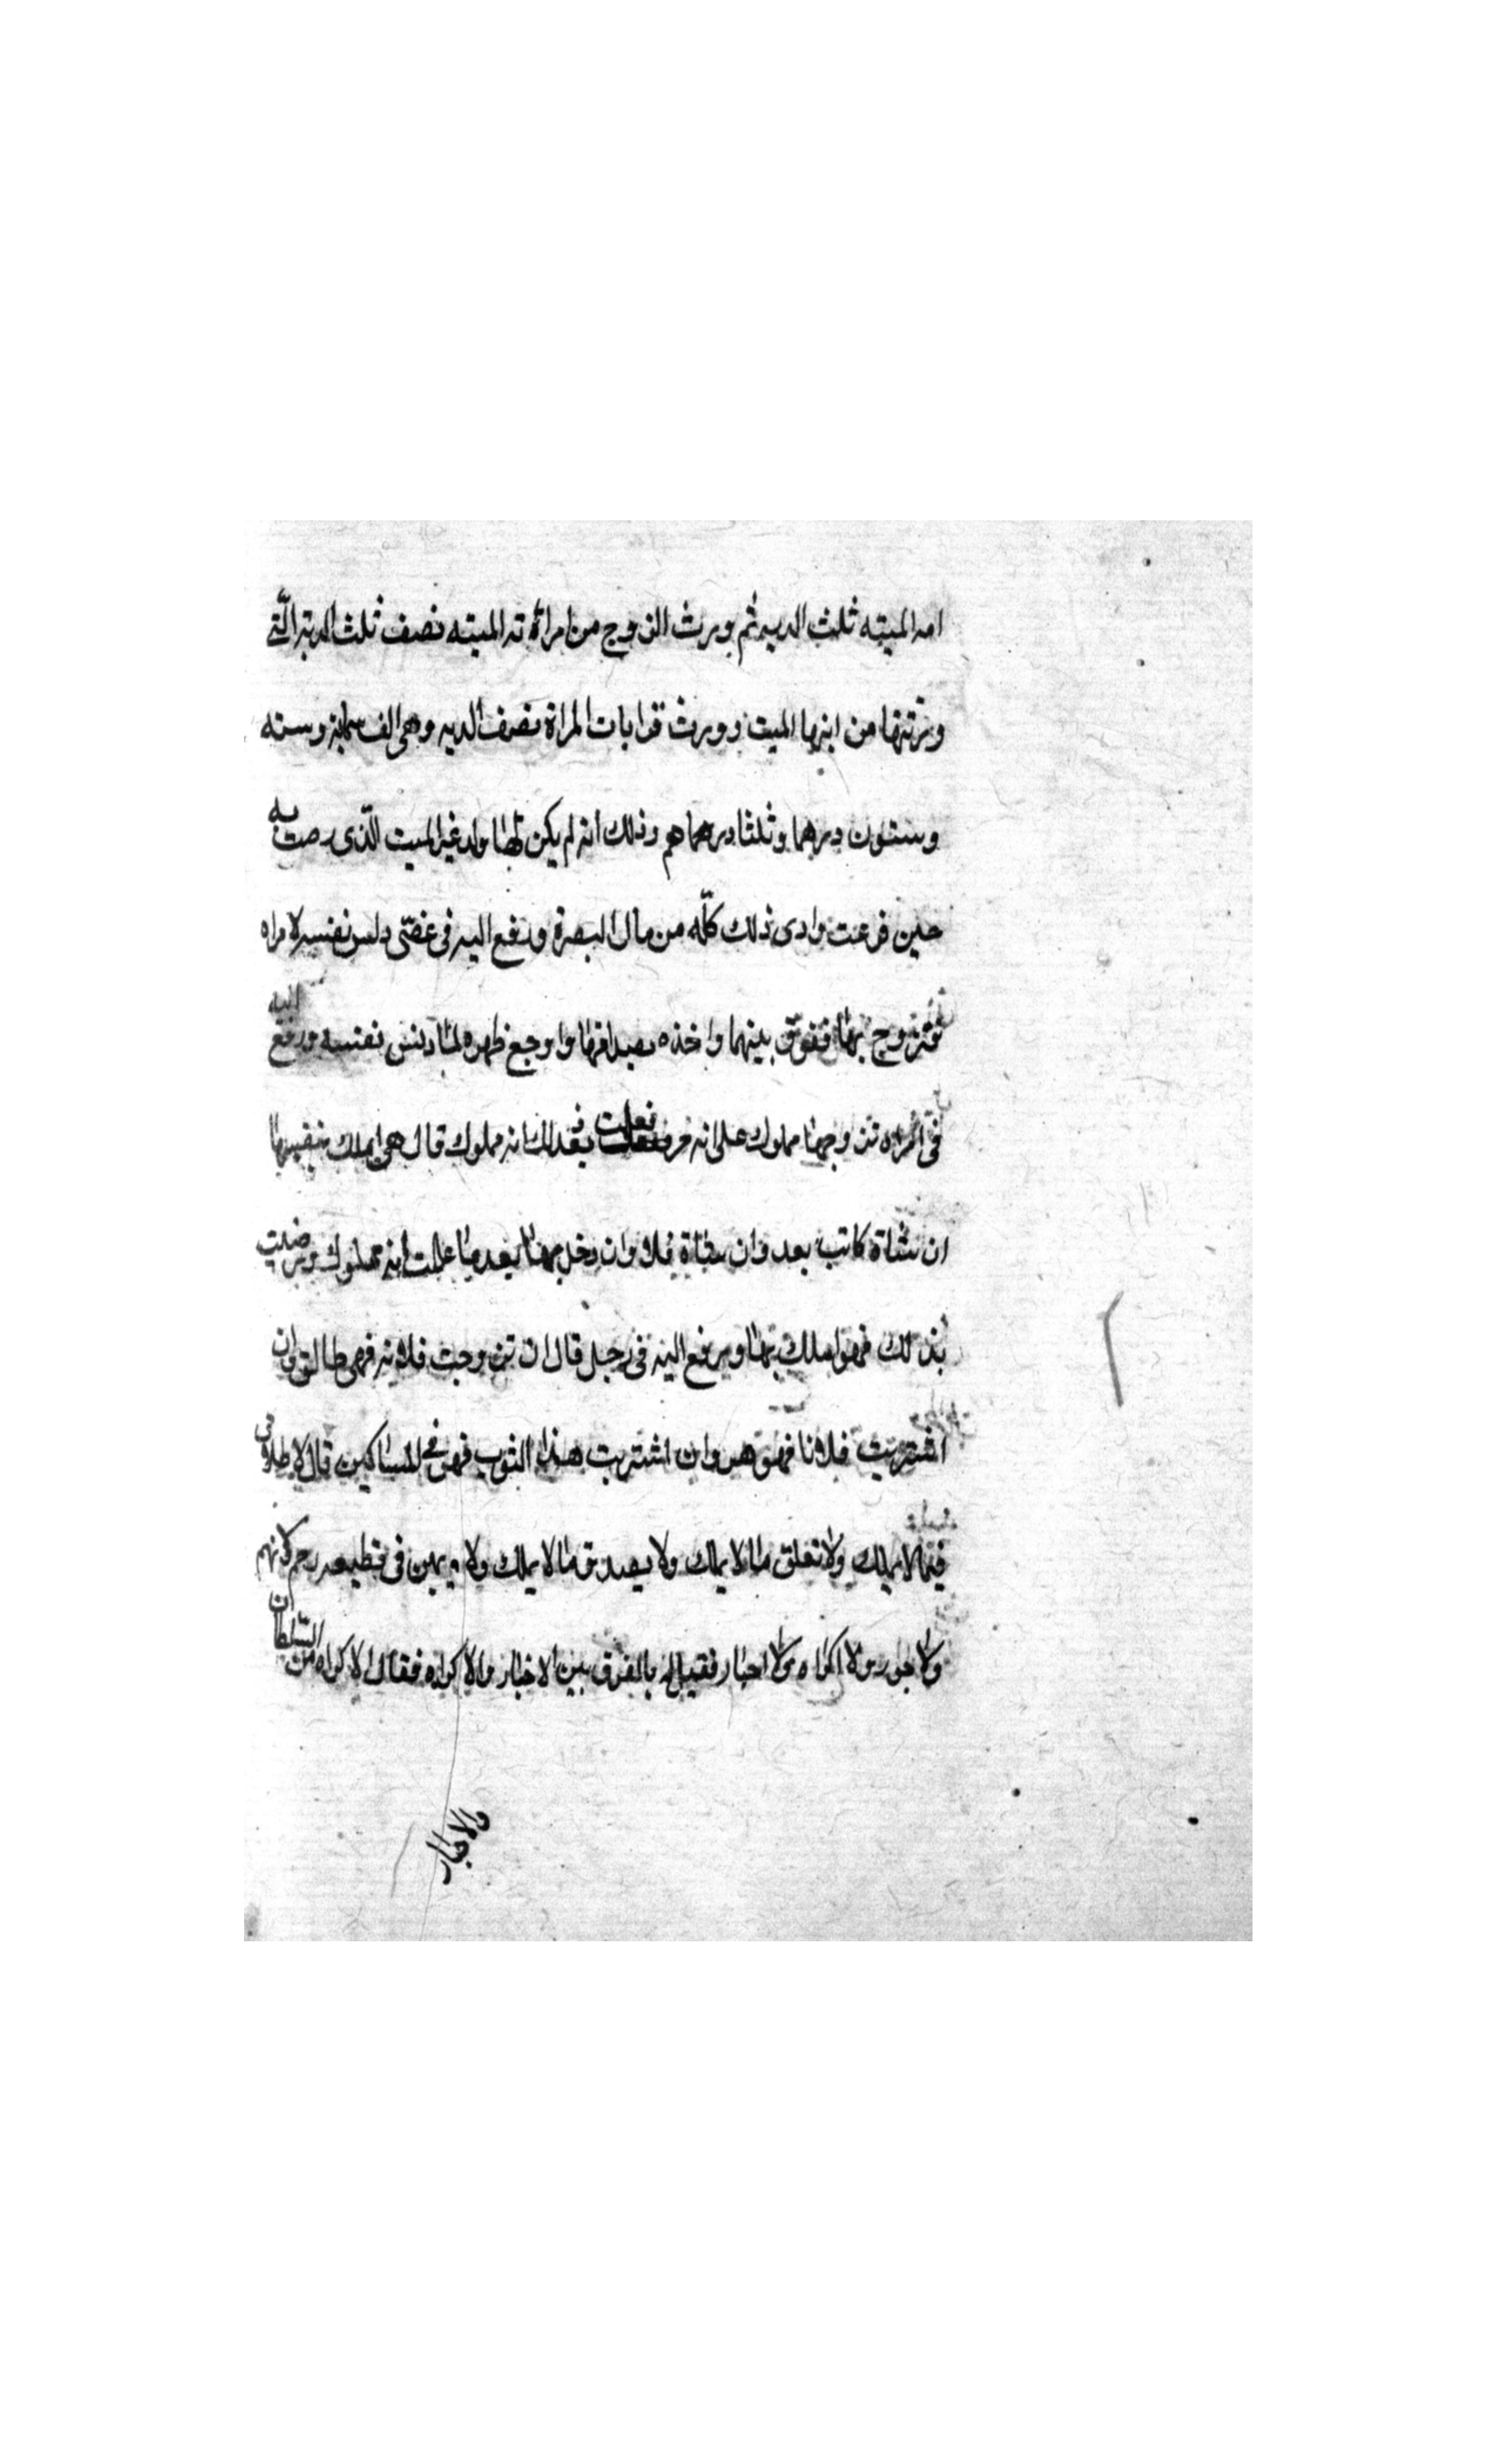 امه الميته ثلث الديه ثم ورث الزوج من امراته الميته نصف ثلث الدية التي
ورثتها من ابنها الميت وورث قرابات المراة نصف الديه وهي الف وستة
وستون درهما وثلثا درهم وذلك انه لم يكن لها ولد غير الميت الذي رمت به
حين فزعت وادى ذلك كله من مال البصرة ورفع اليه في خصى دلس نفسه لامراه
فتزوج بها ففرق بينهما واخذه بصداقها واوجع ظهره لما دلس نفسه ورفع اليه
في امراه تزوجها مملوك على انه حر فعلمت بعد انه مملوك قال هي املك بنفسها
ان شاة كانت بعد وان شاة فلا وان دخل بها بعد ما علمت انه مملوك ورضيت
بذلك فهو املك بها ورفع اليه في رجل قال ان تزوجت فلانه فهي طالق وان
اشتريت فلانا فهو حر وان اشتريت هذا الثوب فهو في المساكين قال لا طلاق
فيما لا يملك ولا تعلق ما لا يملك ولا يصدق ما لا يملك ولا يمين في قطيعه رحم
ولا جور ولا اكراه ولا اجبار فقيل له بالفرق بين الاخبار والاكراه فقال الاكراه من السلطان
والاجبار